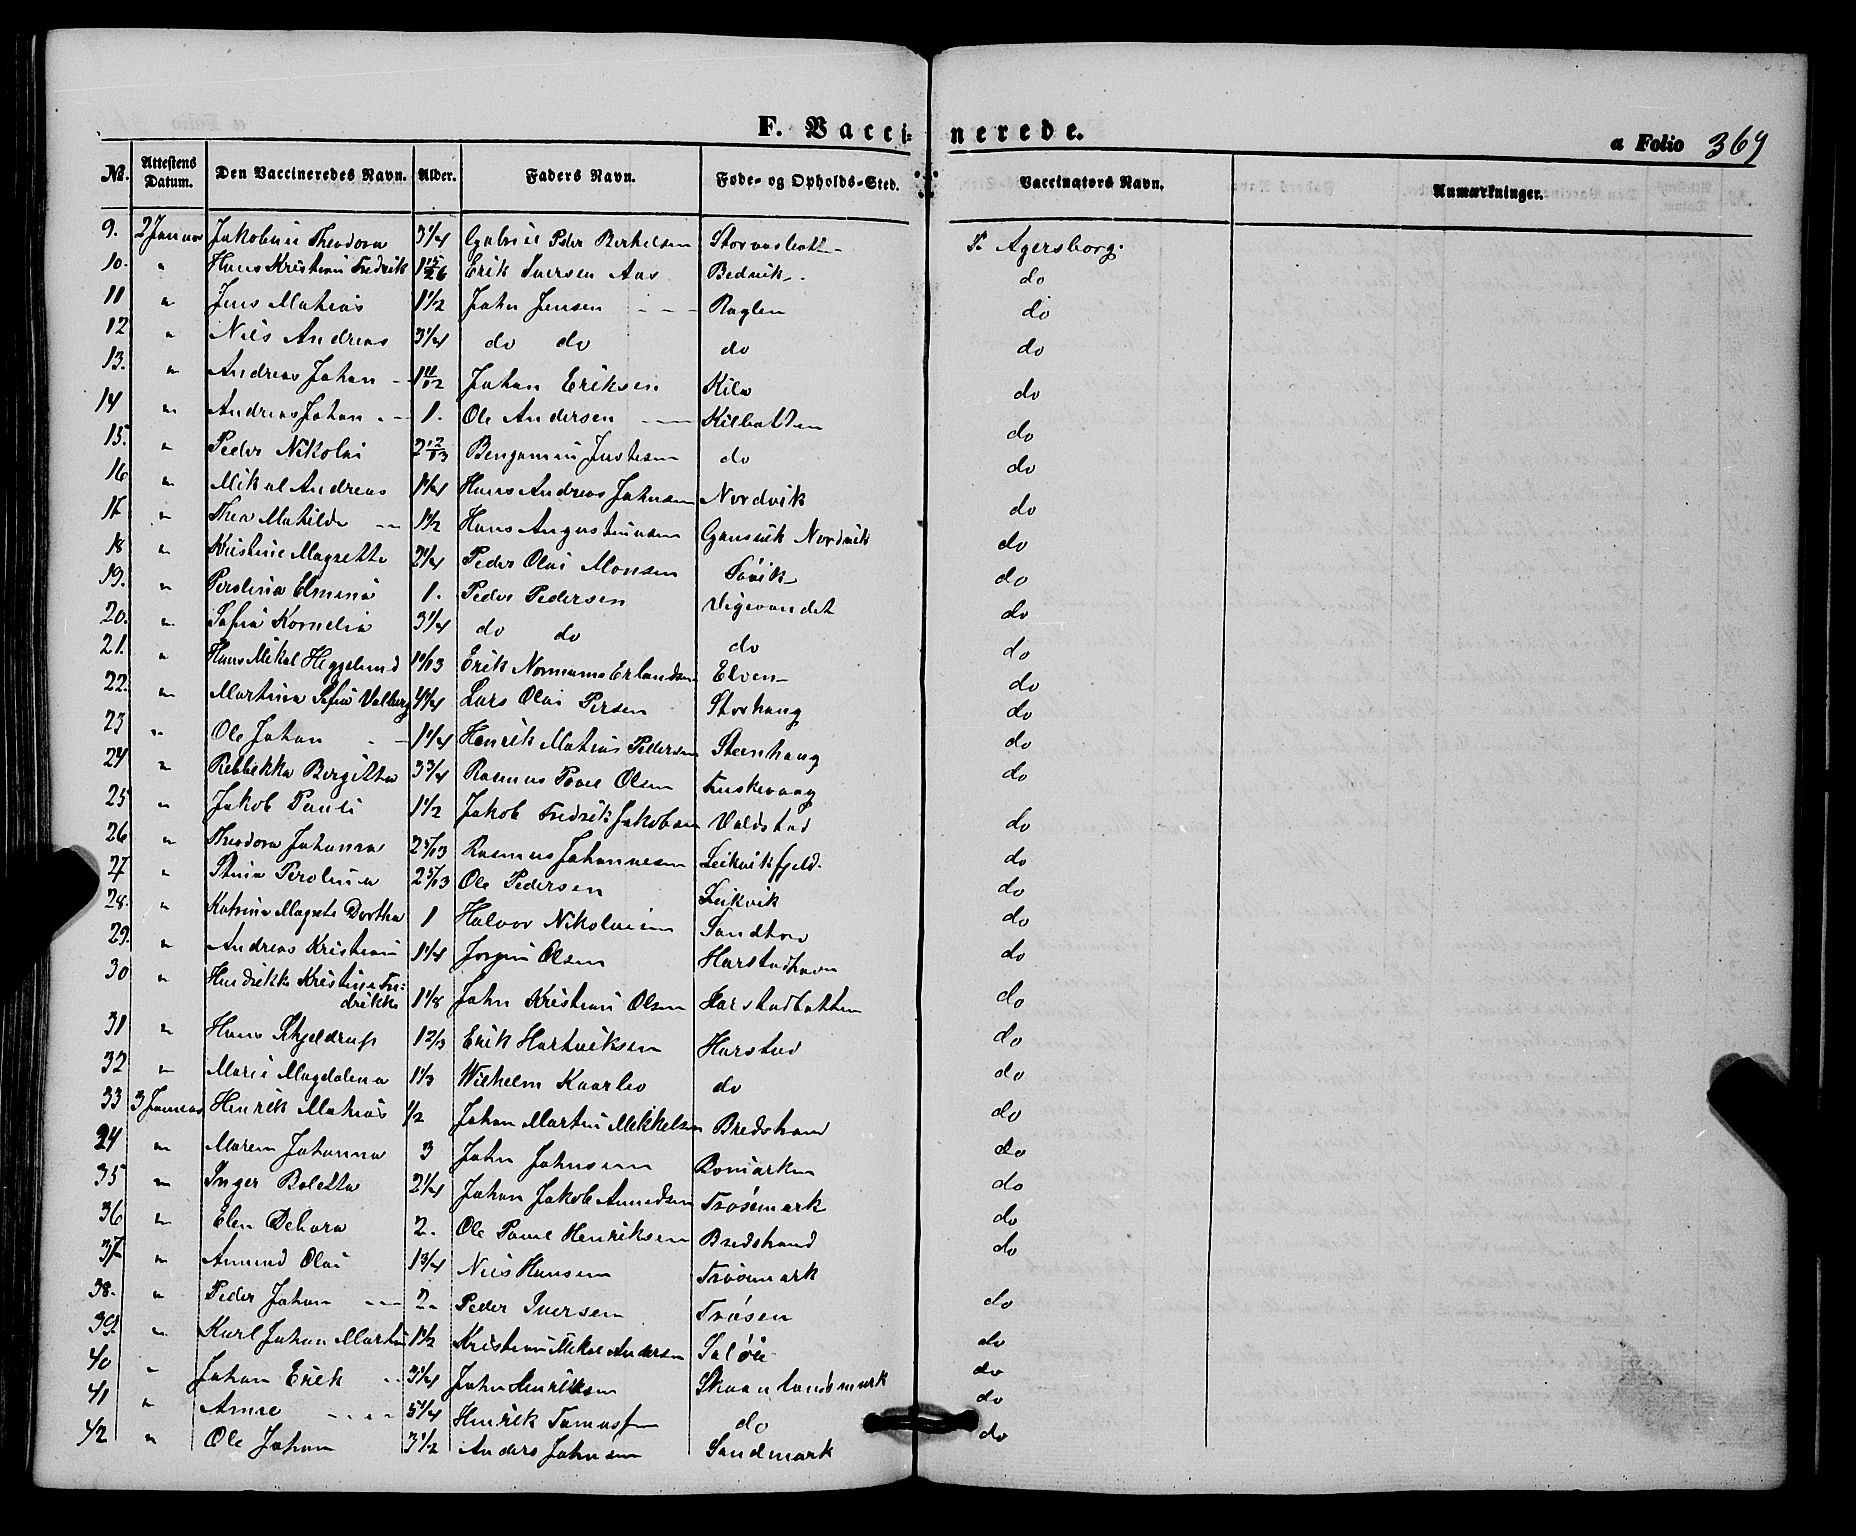 F. Vaccinerede.
a Folio 369
№. Attestens Datum. Den Vaccineredes Navn. Alder. Faders Navn. Føde- og Opholds-Sted. Vaccinators Navn. Anmærkninger.
9. 2 Januar Jakobine Theodora 3 1/4 Gabriel Peder Berthelsen Storvasbotten P. Agersborg.
10. " Hans Kristian Fredrik 1 15/26 Erik Iversen Aas Bedvik do
11 " Jens Mathias 1 1/2 John Jensen Røglen do
12 " Nils Andreas 3 1/4 do do do do
13. " Andreas Johan 1 11/12 Johan Eriksen Kila do
14 " Andreas Johan 1. Ole Andersen Kilbotten do
15. " Peder Nikolai 2 12/13 Benjamin Justesen do do
16 " Mikal Andreas 1 1/4 Hans Andreas Johnsen Nordvik do
17. " Thea Matilde 1 1/2 Hans Augustinusen Gansvik Nordvik do
18 " Kristine Magrethe 2 1/4 Peder Olai Monsen Søvik do
19. " Peroline Elmina 1. Peder Pedersen Vigevandet do
20. " Sofia Kornelia 3 1/4 do do do do
21. " Hans Mikal Heggelund 1 9/13 Erik Normann Erlandsen Elven do
22. " Martina Sofia Valborg 4 1/4 Lars Olai Persen Storhaug do
23 " Ole Johan 1 1/4 Henrik Matias Pedersen Steenhaug do
24 " Rebbekka Bergitta 3 3/4 Rasmus Povel Olsen Fuskevaag do
25 " Jakob Pauli 1 1/2 Jakob Fredrik Jakobsen Voldstad do
26 " Theodora Johanna 2 5/13 Rasmus Johannesen Leikvikfjeld. do
27 " Stina Perolina 2 5/13 Ole Pedersen Leikvik do
28. " Katrina Magrete Dorthea 1 Halvor Nikolaisen Sandtorv do
29. " Andreas Kristian 1 1/4 Jørgen Olsen Harstadhavn do
30 " Hendrikke Kristine Fre-
drikke 1 1/8 John Kristian Olsen Harstadbotten do
31 " Hans Skjeldrup 1 2/3 Erik Hartviksen Harstad do
32 " Marie Magdalena 1 1/3 Wilhelm Kaarbø do do
33 3 Januar Henrik Mathias 1/2 Johan Martin Mikkelsen Bredstrand do
34 " Maren Johanna 3 John Johnsen Romarken do
35 " Inger Boletta 2 1/4 Johan Jakob Amundsen Trøsemark do
36 " Elen Debora 2. Ole Povel Henriksen Bredstrand do
37. " Amund Olai 1 3/4 Nils Hansen Trøsemark do
38. " Peder Johan 2. Peder Iversen Trøsen do
39. " Karl Johan Martin 1 1/2 Kristian Mikal Andersen Saløen do
40 " Johan Erik 3 1/4 John Henriksen Skaanlandsmark do
41 " Anne 5 1/4 Henrik Tomassen do do
42 " Ole Johan 3 1/2 Anders Johnsen Sandmark do